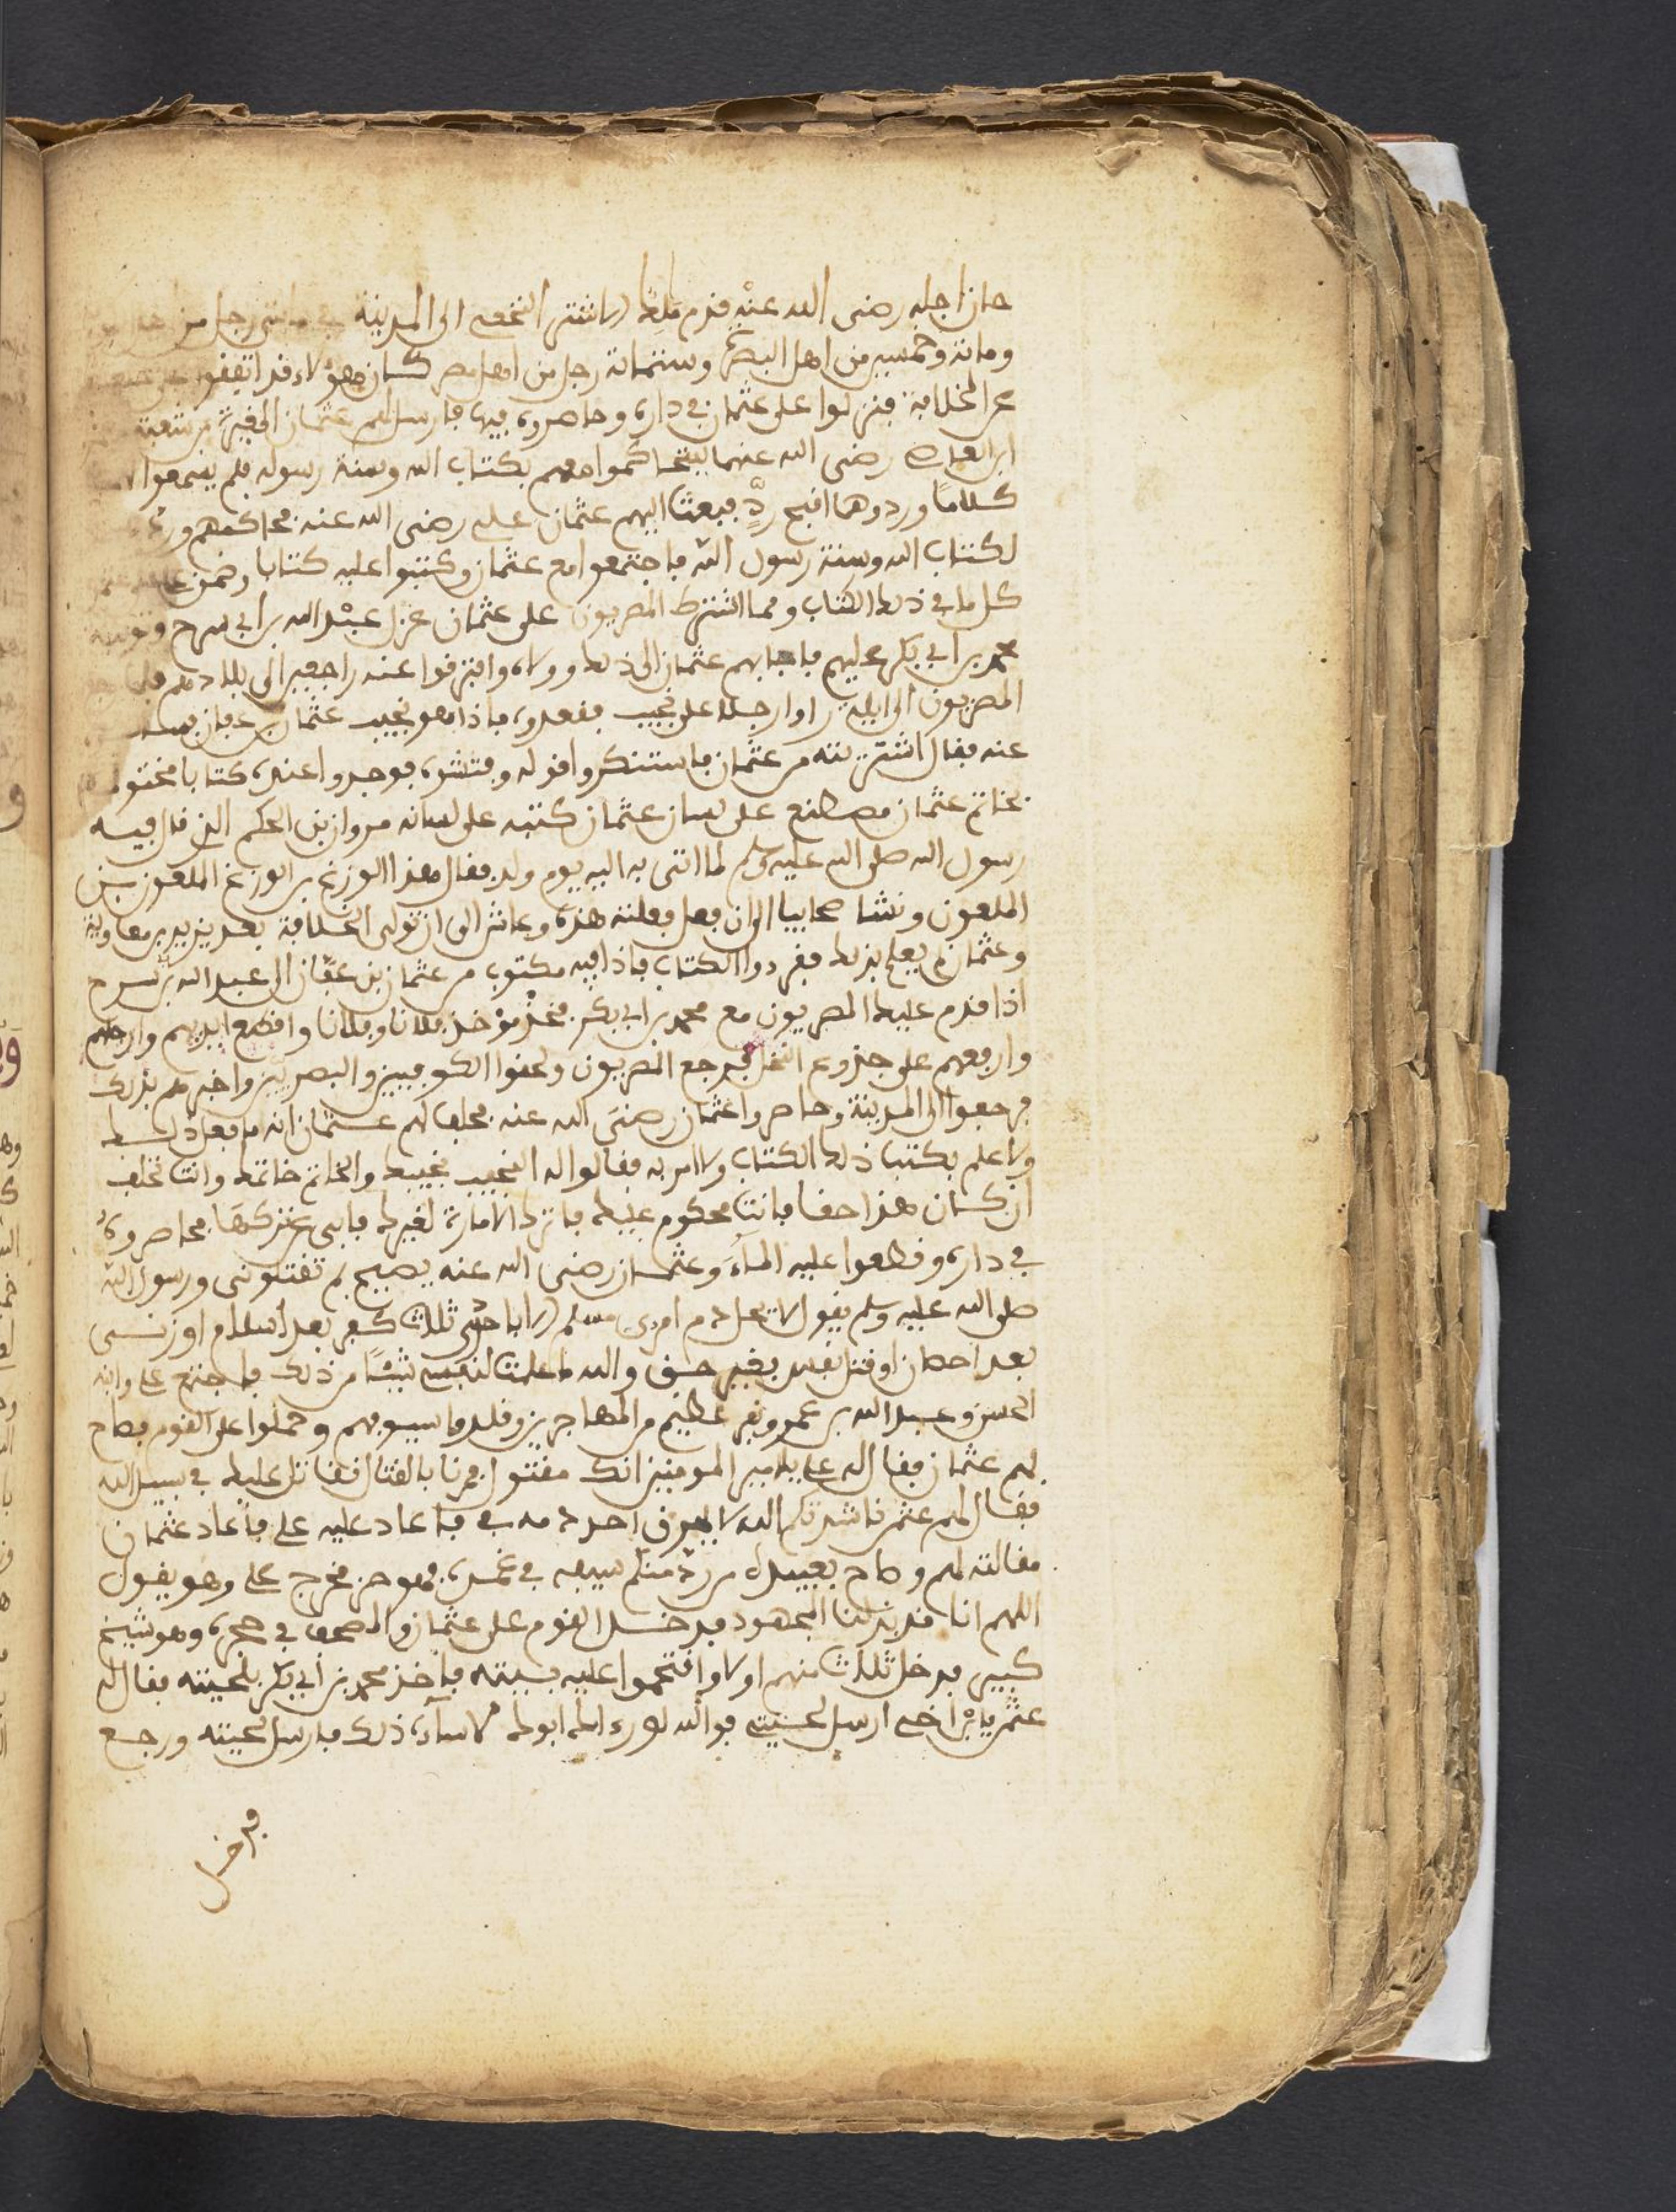 حان اجله رضى الله عنه قدم مالك الاشتر النخعي الى المدينة في مائتي رجل من
ومائة وخمسين من اهل البصرة وستمائة رجل من اهل مصر كان هؤلاء قد اتفقوا
عن الخلافة فنزلوا على عثمان في داره وحاصروه فيها فارسل لهم عثمان المغيرة بن شعبة
ابن العاص رضى الله عنهما ليتحاكموا معهم بكتاب الله وسنة رسوله فلم يسمعوا
كلاما وردوهما اقبح ردّ فبعث اليهم عثمان علي رضى الله عنه فحاكمهم
لكتاب الله وسنة رسول الله فاجتمعوا مع عثمان وكتبوا عليه كتابا وضمن
كل ما في ذلك الكتاب ومما اشترط المصريون على عثمان عزل عبد الله بن ابي سرح
محمد بن ابي بكر عليهم فاجابهم عثمان الى ذلك وولاه وافترقوا عنه راجعين الى بلادهم
المصريون الى ايلة راوا رجلا على نجيب ففعدوه فاذا هو نجيب عثمان بن عفان
عنه فقال اشتريته من عثمان فاستنكروا قوله وفتشوه فوجدوا عنده كتابا مختوما
بخاتم عثمان مصطنع على لسان عثمان كتبه على لسانه مروان بن الحكم الذي قال فيه
رسول الله صلى الله عليه وسلم لما اتى به اليه يوم ولد فقال هذا الوزغ بن الوزغ الملعون بن
الملعون ونشا صحابيا الى ان فعل فعلته هذه وعاش الى ان تولى الخلافة بعد يزيد بن معاوية
وعثمان لم يعلم بذلك فقروا الكتاب فاذا فيه مكتوب من عثمان بن عفّان الى عبد الله بن سرح
اذا قدم عليك المصريون مع محمد بن ابي بكر فخذ فلانا وفلانا واقطع ايديهم وارجلهم
وارفعهم على جذوع النخل فرجع المصريون ولحقوا الكوفيين والبصريين واخبروهم بذلك
فرجعوا الى المدينة وحاصروا عثمان رضى الله عنه فحلف لهم عثمان انه ما فعل ذلك
ولا علم بكتب ذلك الكتاب ولا امر به فقالوا له النجيب نجيبك والخاتم خاتمك وانت تحلف
ان كان هذا حقا فانت محكوم عليك فاترك الامارة لغيرك فابى عن تركها فحاصروه
في داره وقطعوا عليه الماء وعثمان رضى الله عنه يصيح لم تقتلونى ورسول الله
صلى الله عليه وسلم يقول لا يحل دم امرئ مسلم الا باحدى ثلاث كفر بعد اسلام او زنى
بعد احصان او قتل نفس بغير حق والله ما علمت لنفسي شيئا من ذلك فاجتمع علي وابنه
الحسن وعبد الله بن عمر ونفر عظيم من المهاجرين وقلدوا سيوفهم وحملوا على القوم فصاح
بهم عثمان فقال له علي يا امير المومنين انك مقتول فمرنا بالقتال فنقاتل عليك في سبيل الله
فقال لهم عثمن ناشدتكم الله لا يهرق احد دمه في فاعاد عليه علي فاعاد عثمان
مقالته لهم وصاح بعبيده من ردّ منكم سيفه في غمده فهو حر فخرج علي وهو يقول
اللهم انا قد بذلنا المجهود فدخل القوم على عثمان والمصحف في حجره وهو شيخ
كبير فدخل ثلاث منهم اولا واقتحموا عليه بيته فاخذ محمد بن ابي بكر بلحيته فقال له
عثمن يا بن اخي ارسل لحيتي فوالله لو رءاك ابوك لاساءه ذلك فارسل لحيته ورجع
فدخل